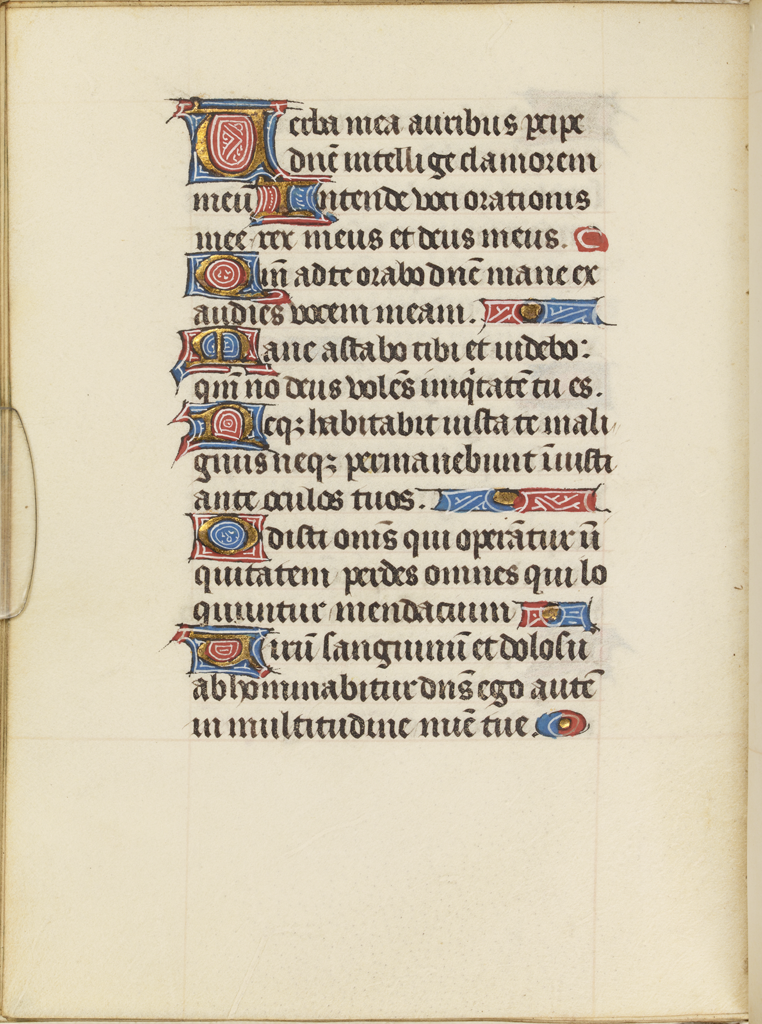 Verba mea auribus p̄cipe
dn̄e intellige clamorem
meū Intende voci orationis
mee rex meus et deus meus.
Qm̄ ad te orabo dn̄e mane ex
audies vocem meam.
Mane astabo tibi et uidebo:
qm̄ nō deus volēs iniq̇tatē tu es.
Neqꝫ habitabit iuxta te mali
gnus neqꝫ permanebunt īiusti
ante oculos tuos.
Odisti om̄s qui operātur in̄
quitatem perdes omnes qui lo
quuntur mendacium
Virū sanguinū et dolosū
abhominabitur dn̄s ego autē
in multitudine mīe tue.